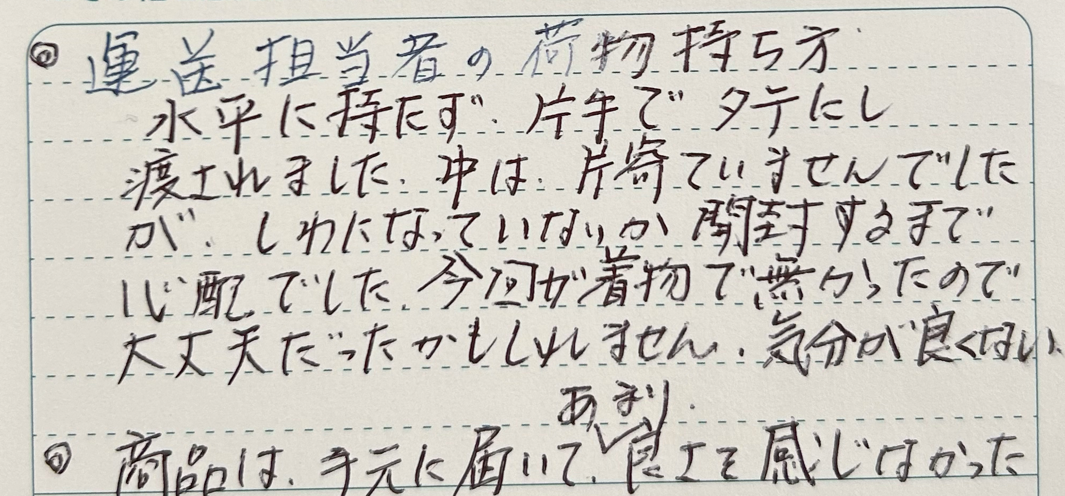 ◎ 運送担当者の荷物持ち方
水平に持たず、片手でタテにし
渡されました。中は、片寄ていませんでした
が、しわになっていないか開封するまで
心配でした。今回が着物で無かったので
大丈夫だったかもしれません。気分が良くない。
あまり
◎ 商品は、手元に届いて、良さを感じなかった